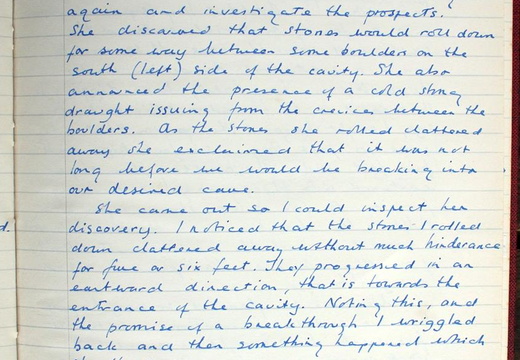 again and investigate the prospects.
She discovered that stones would roll down
for some way between some boulders on the
south (left) side of the cavity. She also
announced the presence of a cold strong
draught issuing from the crevices between the
boulders. As the stones she rolled clattered
away she exclaimed that it was not
long before we would be breaking into
our desired cave.
She came out so I could inspect her
d.
discovery. I noticed that the stones I rolled
down clattered away without much hinderance
for five or six feet. They progressed in an
eastward direction, that is towards the
entrance of the cavity. Noting this, and
the promise of a breakthrough I wriggled
back and then something happened which